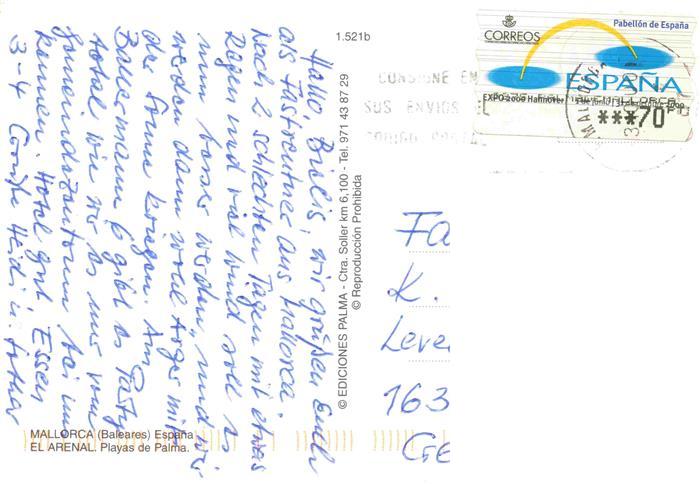 CORREOS
Pabellón de España
ESPAÑA
EXPO-2000 Hannover
***70
CONSIGNE EN
SUS ENVIOS EL
CODIGO POSTAL
1.521b
© EDICIONES PALMA - Ctra. Soller km 6,100 - Tel. 971 43 87 29
© Reproducción Prohibida
Hallo, wir grüßen Euch
als Fastrentner aus Mallorca.
Nach 2 schlechten Tagen mit etwas
Regen und viel Wind soll es
nun besser werden, und wir
werden dann wohl mit
der kriegen. Am
Ballermann 6 gibt es Party
total wie wir es uns vom
Gemeindezentrum bei uns
kennen. Hotel gut Essen
3-4 Grüße Heidi u.
Fa
K.
Leve
163
Ge
MALLORCA (Baleares) España
EL ARENAL. Playas de Palma.